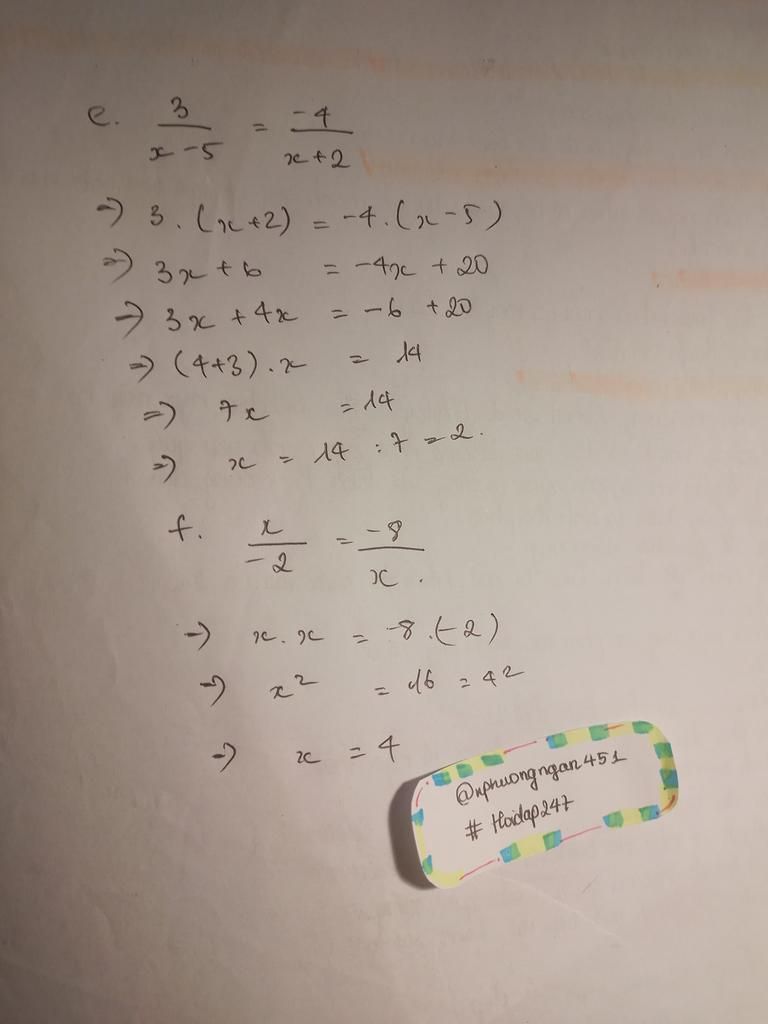 e. 3/(x-5) = -4/(x+2)
=> 3.(x+2) = -4.(x-5)
=> 3x+6 = -4x+20
=> 3x+4x = -6+20
=> (4+3).x = 14
=> 7x = 14
=> x = 14 : 7 = 2.
f. x/-2 = -8/x.
=> x.x = -8.(-2)
=> x² = 16 = 4²
=> x = 4
@nphuongngan451
# Hoidap247